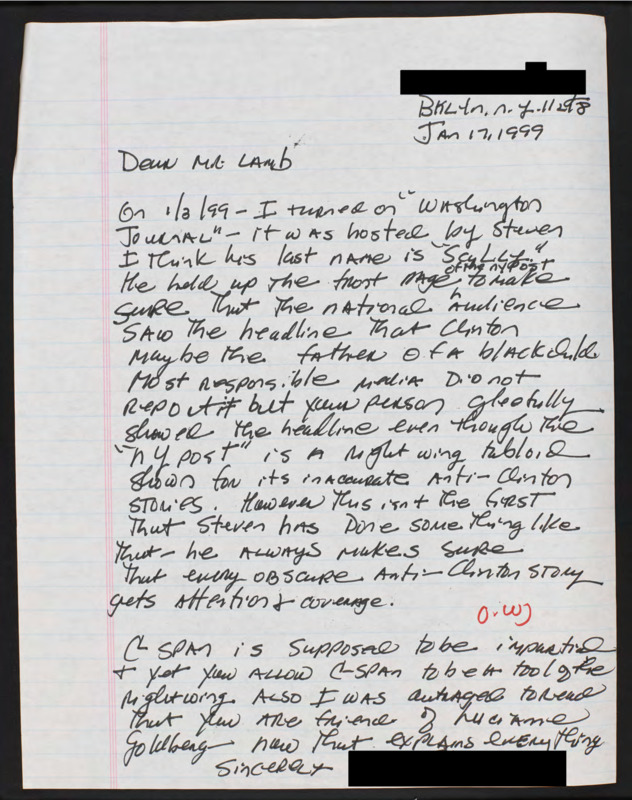 BKLYn, n.y. 11218
Jan 17, 1999
Dear Mr Lamb
On 1/3/99 - I turned on "Washington
Journal" - it was hosted by Steven
I think his last name is "Scully."
of the ny Post
He held up the front page to make
sure that the national audience
saw the headline that Clinton
maybe the father of a black child.
Most responsible media did not
report it but your person gleefully
showed the headline even though the
"ny post" is a right wing tabloid
shown for its inaccurate anti-Clinton
stories. However this isnt the first
that Steven has done something like
that - he always makes sure
that every obscure anti-Clinton story
gets attention & coverage.
C-SPAN is supposed to be impartial
& yet you allow C-SPAN to be a tool of the
right wing. Also I was outraged to read
that you are friend of Lucianne
Goldberg now that explains everything
Sincerely